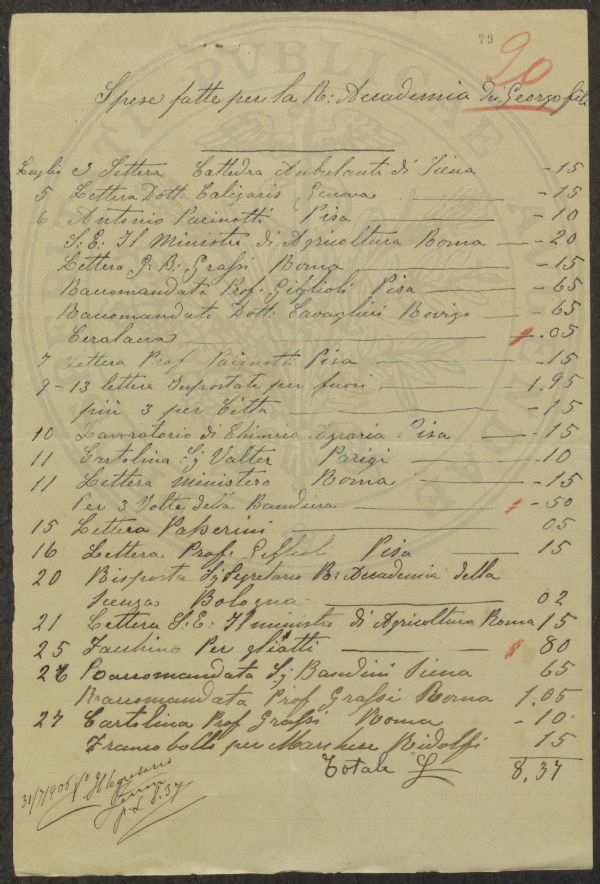 79
20
Spese fatte per la R: Accademia dei Georgofili
Luglio 3 Lettera Cattedra Ambulanti di Siena - 15
5 Lettera Dott: Caligaris Genova - 15
6 Antonio Pacinotti Pisa - 10
S: E: Il Ministro di Agricoltura Roma - 20
Lettera G: B: Grassi Roma - 15
Raccomandata Prof: Giglioli Pisa - 65
Raccomandato Dott: Cavaglieri Rovigo - 65
Ceralacca - .05
7 Lettera Prof Pacinotti Pisa - 15
9 - 13 lettere Impostate per fuori 1.95
più 3 per Città - 15
10 Lavoratorio di Chimica Agraria Pisa - 15
11 Cartolina Sig Valter Parigi - 10
11 Lettera Ministero Roma - 15
Per 3 Volte della Bandiera - 50
15 Lettera Passerini 05
16 Lettera Prof: Giglioli Pisa 15
20 Risposta Sig Segretario R: Accademia della
Sienza Bologna 02
21 Lettera S: E: Il ministro di Agricoltura Roma 15
25 Facchino Per gli atti 80
26 Raccomandata Sig Bandini Siena 65
Raccomandata Prof Grassi Roma 1.05
27 Cartolina Prof Grassi Roma - 10
Francobollo per Marchese Ridolfi 15
Totale £ 8.37
31/7/906 Il Segretario
p. £ 8.37